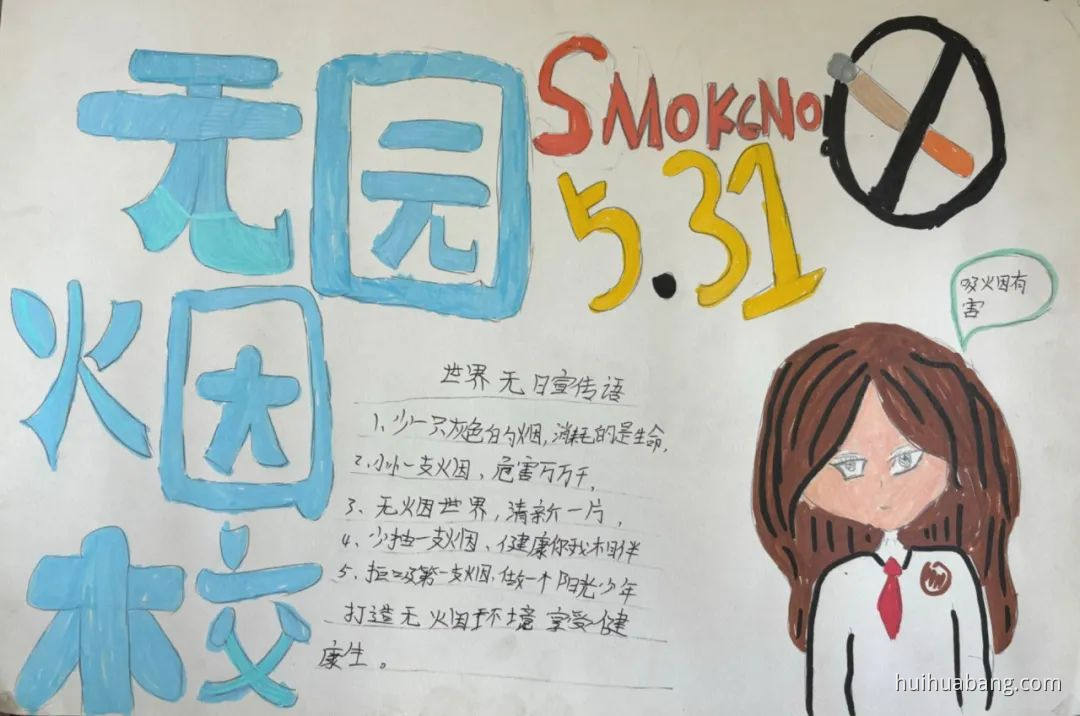 无烟校园
SMOKENO
5.31
吸火因有
害
世界无日宣传语
1、少一只灰色的烟,消耗的是生命,
2、小小一支火因、危害万万千,
3、无火因世界,清新一片,
4、少抽一支火因、健康你我相伴
5、拒吸第一支烟,做一个阳光少年
打造无火因环境享受健
康生。
huihuabang.com